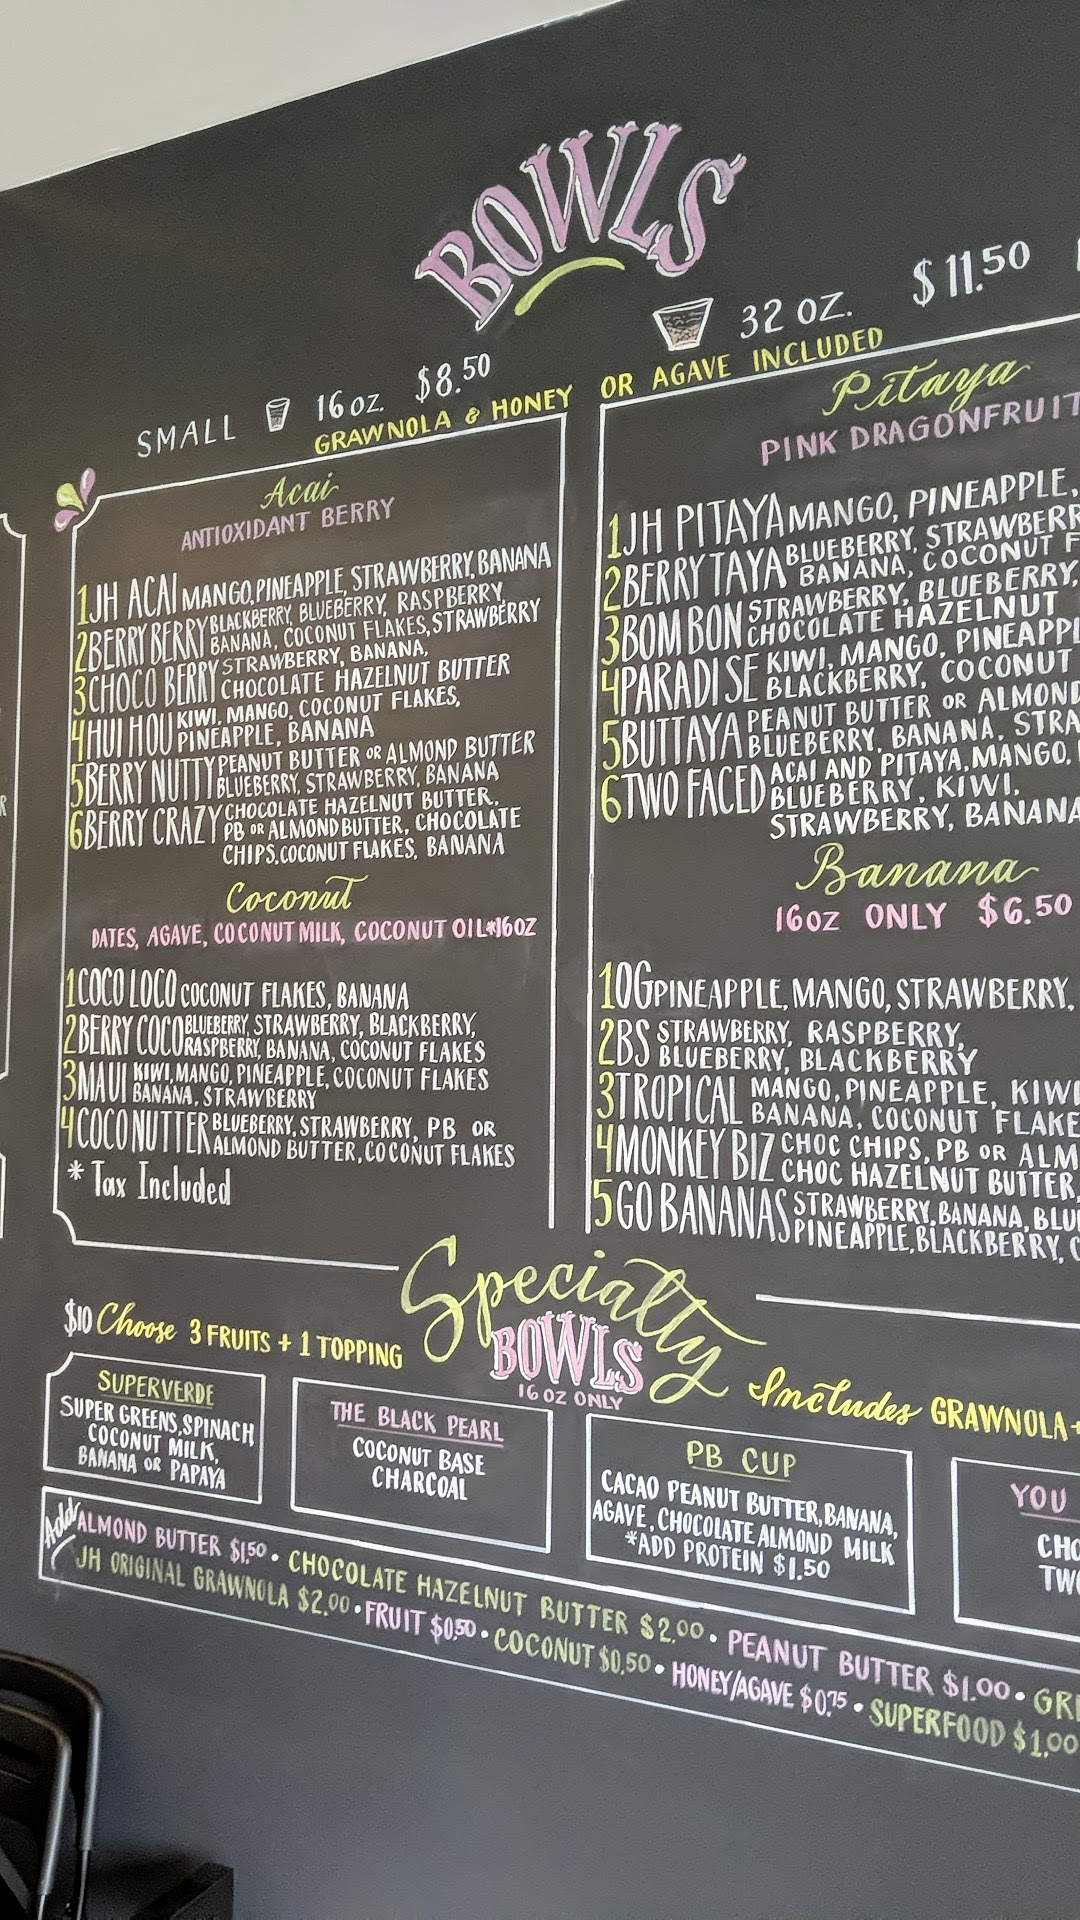 BOWLS
SMALL 16 OZ. $8.50
32 OZ. $11.50
GRAWNOLA & HONEY OR AGAVE INCLUDED
Acai
ANTIOXIDANT BERRY
1 JH ACAI MANGO, PINEAPPLE, STRAWBERRY, BANANA
2 BERRY BERRY BLACKBERRY, BLUEBERRY, RASPBERRY,
BANANA, COCONUT FLAKES, STRAWBERRY
3 CHOCO BERRY STRAWBERRY, BANANA,
CHOCOLATE HAZELNUT BUTTER
4 HUI HOU KIWI, MANGO, COCONUT FLAKES,
PINEAPPLE, BANANA
5 BERRY NUTTY PEANUT BUTTER OR ALMOND BUTTER
BLUEBERRY, STRAWBERRY, BANANA
6 BERRY CRAZY CHOCOLATE HAZELNUT BUTTER,
PB OR ALMOND BUTTER, CHOCOLATE
CHIPS, COCONUT FLAKES, BANANA
Coconut
DATES, AGAVE, COCONUT MILK, COCONUT OIL *16OZ
1 COCO LOCO COCONUT FLAKES, BANANA
2 BERRY COCO BLUEBERRY, STRAWBERRY, BLACKBERRY,
RASPBERRY, BANANA, COCONUT FLAKES
3 MAUI KIWI, MANGO, PINEAPPLE, COCONUT FLAKES
BANANA, STRAWBERRY
4 COCONUTTER BLUEBERRY, STRAWBERRY, PB OR
ALMOND BUTTER, COCONUT FLAKES
* Tax Included
Pitaya
PINK DRAGONFRUIT
1 JH PITAYA MANGO, PINEAPPLE,
2 BERRY TAYA BLUEBERRY, STRAWBERR
BANANA, COCONUT F
3 BOM BON STRAWBERRY, BLUEBERRY,
CHOCOLATE HAZELNUT
4 PARADISE KIWI, MANGO, PINEAPPL
BLACKBERRY, COCONUT
5 BUTTAYA PEANUT BUTTER OR ALMOND
BLUEBERRY, BANANA, STRA
6 TWO FACED ACAI AND PITAYA, MANGO,
BLUEBERRY, KIWI,
STRAWBERRY, BANANA
Banana
16OZ ONLY $6.50
1 OG PINEAPPLE, MANGO, STRAWBERRY,
2 BS STRAWBERRY, RASPBERRY,
BLUEBERRY, BLACKBERRY
3 TROPICAL MANGO, PINEAPPLE, KIWI
BANANA, COCONUT FLAKE
4 MONKEY BIZ CHOC CHIPS, PB OR ALM
CHOC HAZELNUT BUTTER,
5 GO BANANAS STRAWBERRY, BANANA, BLU
PINEAPPLE, BLACKBERRY, C
Specialty
BOWLS
16 OZ ONLY
$10 Choose 3 FRUITS + 1 TOPPING
Includes GRAWNOLA +
SUPERVERDE
SUPER GREENS, SPINACH,
COCONUT MILK,
BANANA OR PAPAYA
THE BLACK PEARL
COCONUT BASE
CHARCOAL
PB CUP
CACAO PEANUT BUTTER, BANANA,
AGAVE, CHOCOLATE ALMOND MILK
*ADD PROTEIN $1.50
YOU
CHO
TWO
Add
ALMOND BUTTER $1.50 • CHOCOLATE HAZELNUT BUTTER $2.00 • PEANUT BUTTER $1.00 • GR
JH ORIGINAL GRAWNOLA $2.00 • FRUIT $0.50 • COCONUT $0.50 • HONEY/AGAVE $0.75 • SUPERFOOD $1.00